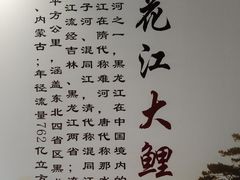 花江大鲤
河之一，黑龙江在中国境内的
江在隋代称难河，唐代称那水
子河、混同江，清代称混同江
江流经吉林、黑龙江两省；流
平方公里，涵盖东北四省区黑
、内蒙古；年径流量762亿立方